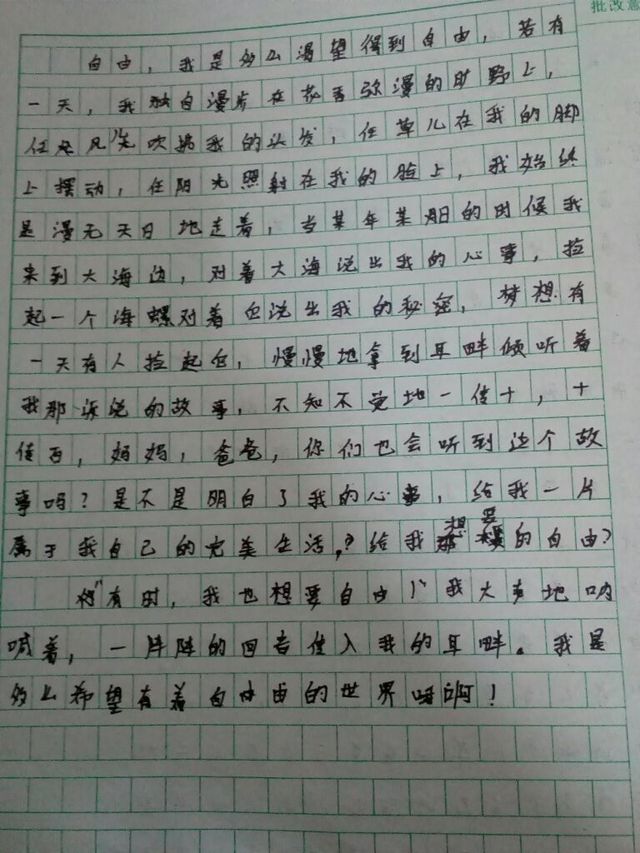 批改意
自由，我是多么渴望得到自由，若有
一天，我独自漫步在花香弥漫的旷野上，
任风儿吹拂我的头发，任草儿在我的脚
上摆动，任阳光照射在我的脸上，我始终
是漫无天日地走着，当某年某月的时候我
来到大海边，对着大海说出我的心事，捡
起一个海螺对着它说出我的秘密，梦想有
一天有人捡起它，慢慢地拿到耳畔倾听着
我那诉说的故事，不知不觉地一传十，十
传百，妈妈，爸爸，你们也会听到这个故
事吗？是不是明白了我的心事，给我一片
属于我自己的完美生活，？给我想要的自由？
"有时，我也想要自由！"我大声地呐
喊着，一阵阵的回音传入我的耳畔。我是
多么希望有着自由的世界啊！